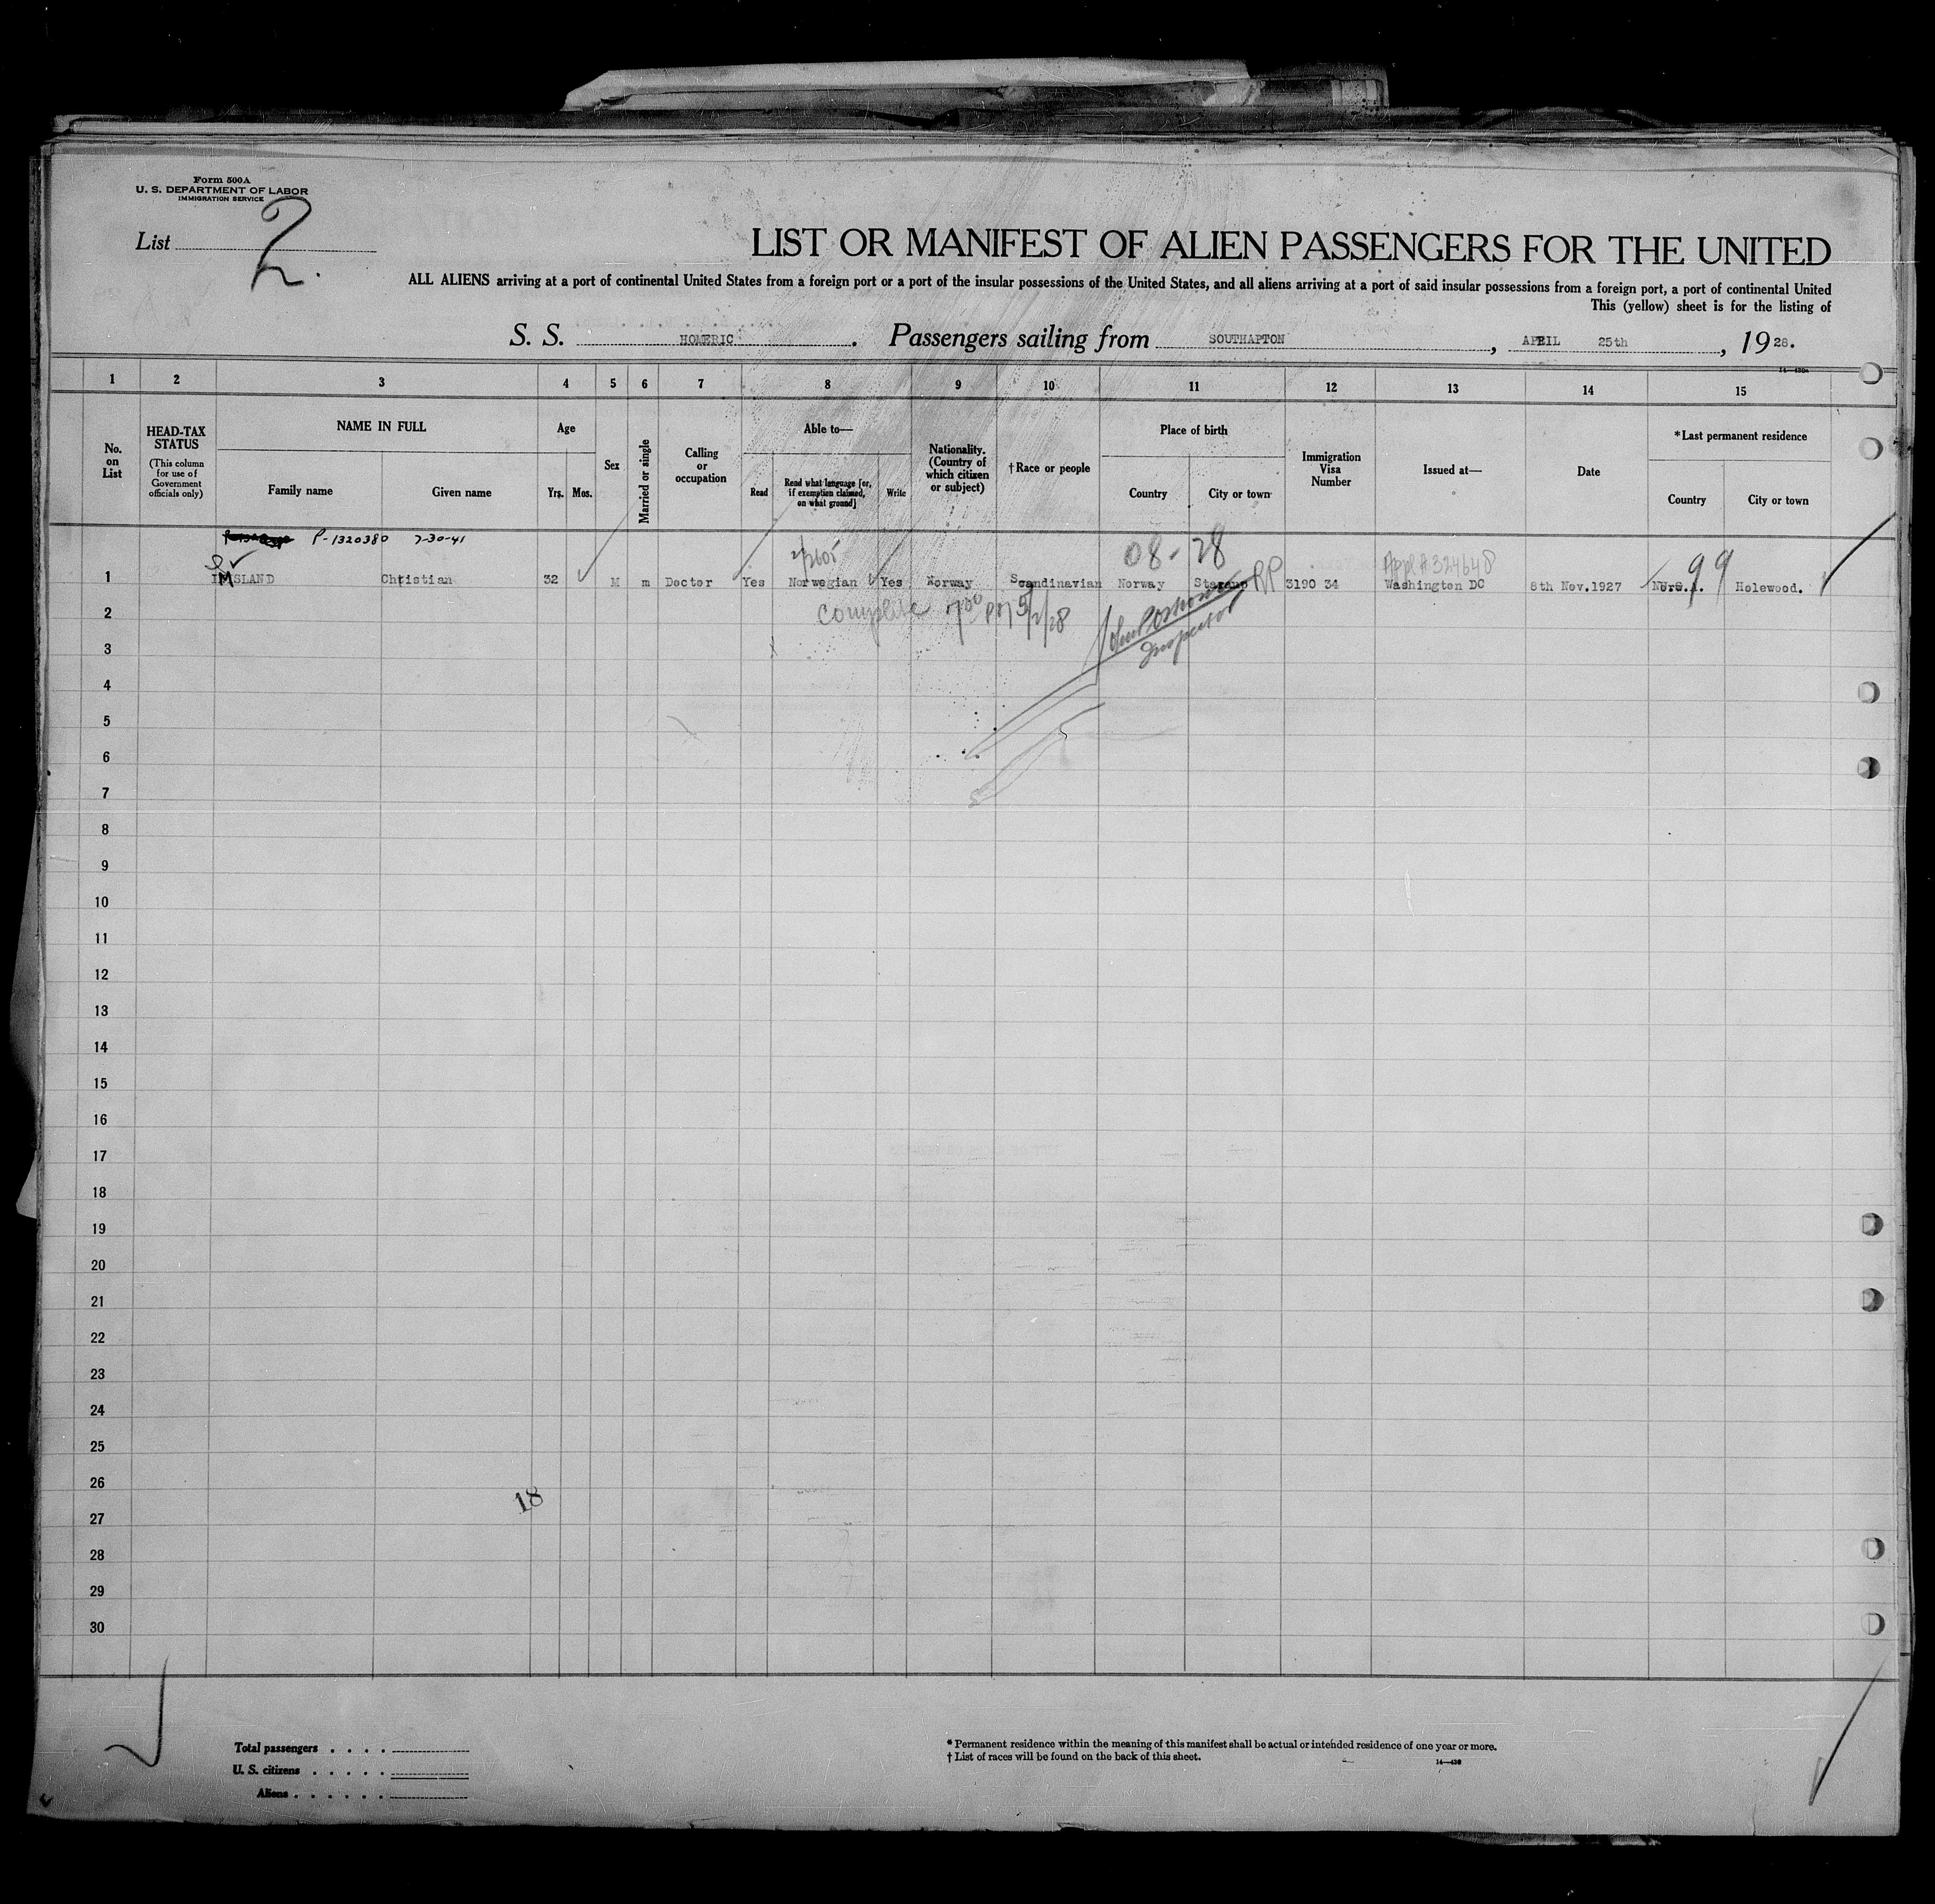 Form 500A
U. S. DEPARTMENT OF LABOR
IMMIGRATION SERVICE
List 2.
LIST OR MANIFEST OF ALIEN PASSENGERS FOR THE UNITED
ALL ALIENS arriving at a port of continental United States from a foreign port or a port of the insular possessions of the United States, and all aliens arriving at a port of said insular possessions from a foreign port, a port of continental United
This (yellow) sheet is for the listing of
S. S. HOMERIC. Passengers sailing from SOUTHAPTON, APRIL 25th, 1928.
1 2 3 4 5 6 7 8 9 10 11 12 13 14 15
No. on List
HEAD-TAX STATUS
(This column for use of Government officials only)
NAME IN FULL
Family name
Given name
Age
Yrs. Mos.
Sex
Married or single
Calling or occupation
Able to—
Read
Read what language [or, if exemption claimed, on what ground]
Write
Nationality. (Country of which citizen or subject)
†Race or people
Place of birth
Country
City or town
Immigration Visa Number
Issued at—
Date
*Last permanent residence
Country
City or town
P-1320380 7-30-41
2/2605
08-28
Appl#324648
99
1 IMSLAND Christian 32 M m Doctor Yes Norwegian Yes Norway Scandinavian Norway 3190 34 Washington DC 8th Nov.1927 Holewood.
2
Complete 700 PM 5/2/28
Inspector
3
4
5
6
7
8
9
10
11
12
13
14
15
16
17
18
19
20
21
22
23
24
25
26
18
27
28
29
30
Total passengers . . . .
U. S. citizens . . . . .
Aliens . . . . . .
* Permanent residence within the meaning of this manifest shall be actual or intended residence of one year or more.
† List of races will be found on the back of this sheet.
14—430